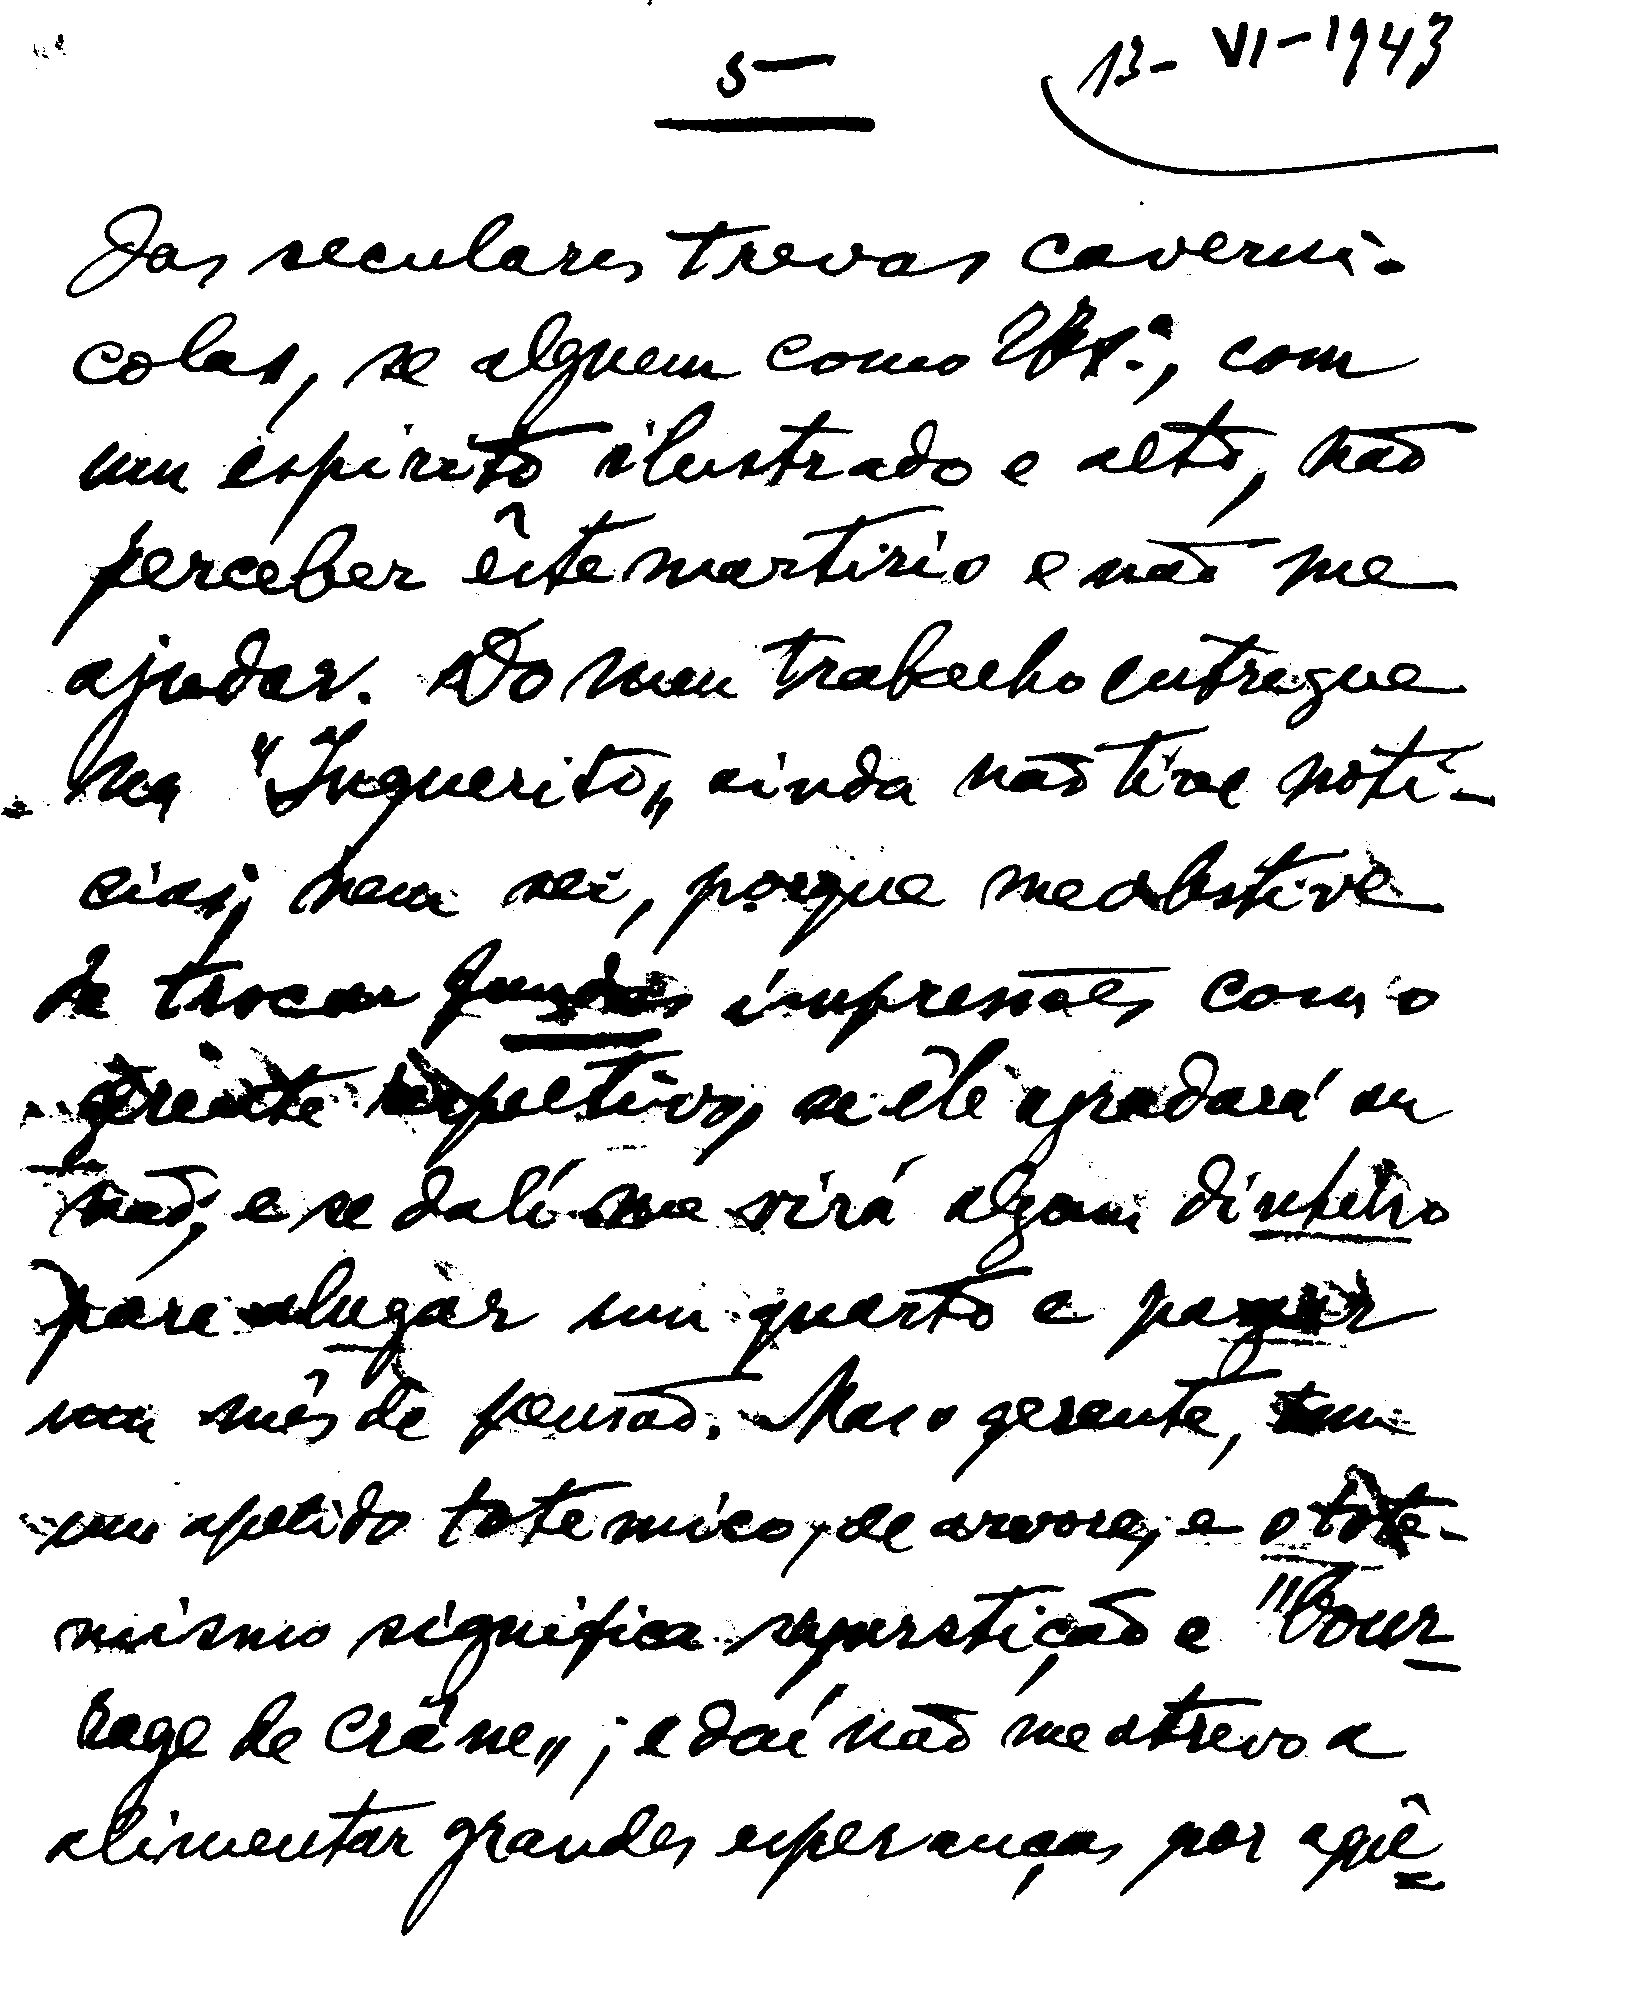 5—
13-VI-1943
das seculares trevas caverni-
colas, se alguem como V. Ex.ª, com
um espirito ilustrado e alto, não
perceber êste martirio e não me
ajudar. Do meu trabalho entregue
na "Inquerito„ ainda não tive notí-
cias; nem sei, porque me abstive
de trocar impressões com o
gerente respetivo, se êle agradará ou
não; e se dalí me virá algum dinheiro
para alugar um quarto e pagar
um mês de pensão. Mas o gerente, tem
um apelido totemico, de arvore, e o tote-
mismo significa superstição e "bour-
rage de crâne„; e daí não me atrevo a
alimentar grandes esperanças por aquê-